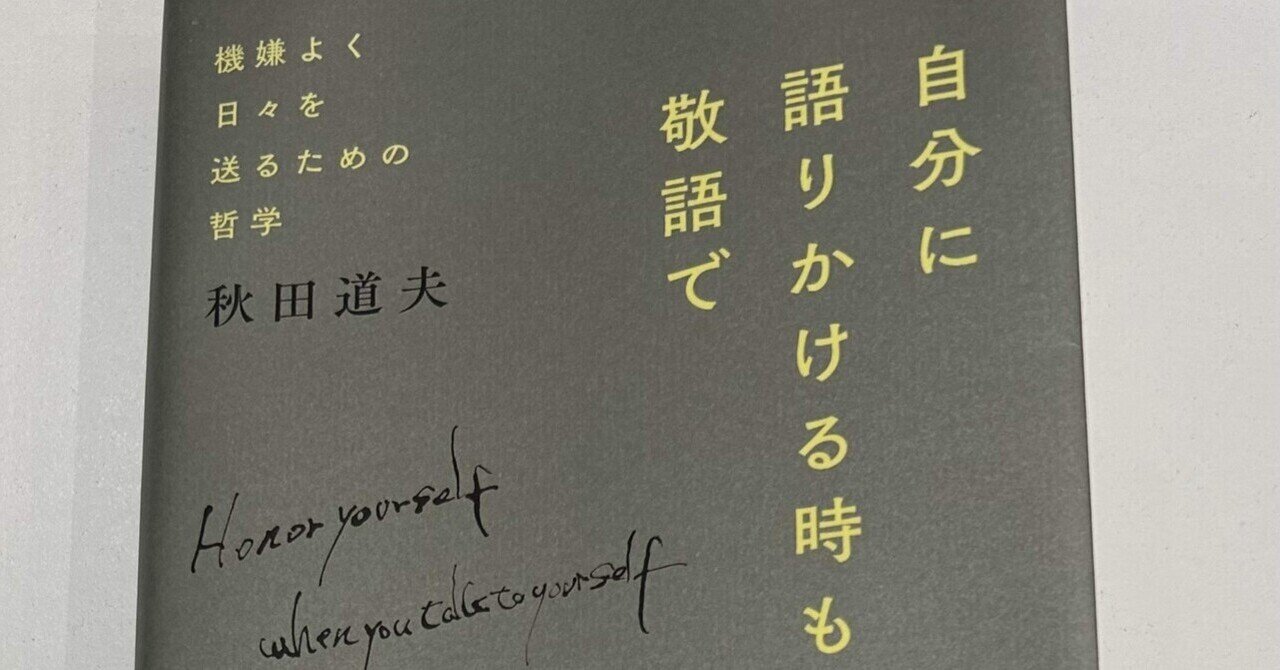 自分に
語りかける時も
敬語で
機嫌よく
日々を
送るための
哲学
秋田道夫
Honor yourself
when you talk to yourself